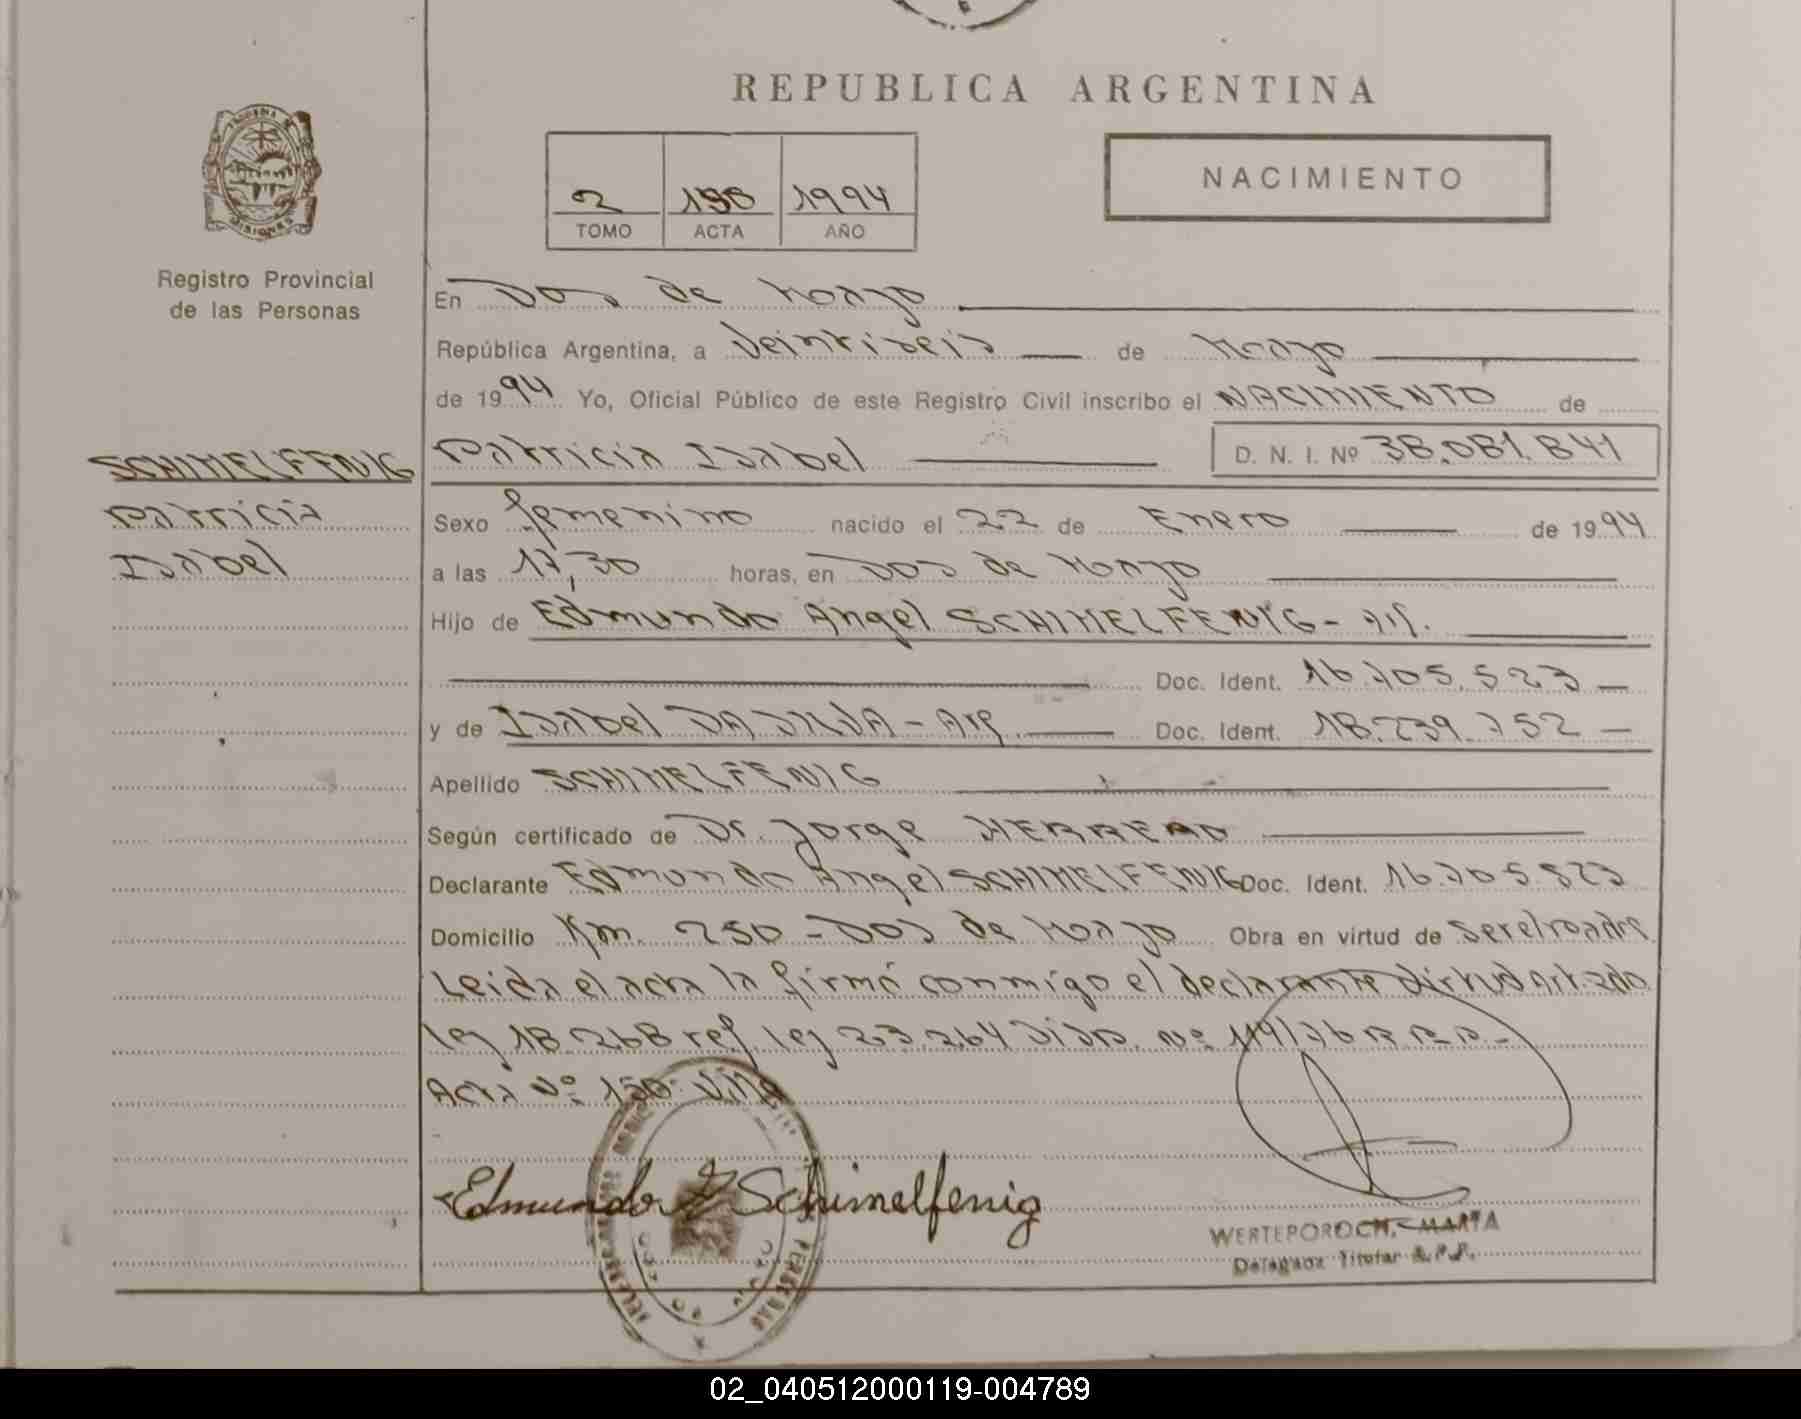 REPUBLICA ARGENTINA
NACIMIENTO
2 1994
TOMO ACTA AÑO
Registro Provincial
de las Personas
En Dos de Mayo
República Argentina, a Veintiseis de Mayo
de 1994 Yo, Oficial Público de este Registro Civil inscribo el NACIMIENTO de
SCHIMELFENIG
Patricia
Isabel
Patricia Isabel D. N. I. Nº 38.081.841
Sexo femenino nacido el 22 de Enero de 1994
a las 17,30 horas, en Dos de Mayo
Hijo de Edmundo Angel SCHIMELFENIG - Arg.
Doc. Ident. 16.705.523
y de Isabel DA SILVA - Arg. Doc. Ident. 18.239.752
Apellido SCHIMELFENIG
Según certificado de Dr. Jorge
Declarante Edmundo Angel SCHIMELFENIG Doc. Ident. 16.705.523
Domicilio Km. 250 - Dos de Mayo Obra en virtud de ser el padre
Leida el acta la firmó conmigo el declarante
ley 18.268 ref. ley 23.264 Disp. Nº 119/76 R.P.P.-
Acta Nº
Edmundo A Schimelfenig
WERTEPOROCH, MARTA
Delegada Titular R.P.P.
02_040512000119-004789